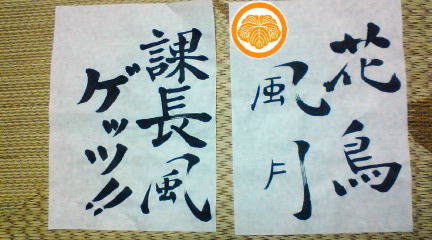 花鳥
風月
課長風
ゲッツ!!